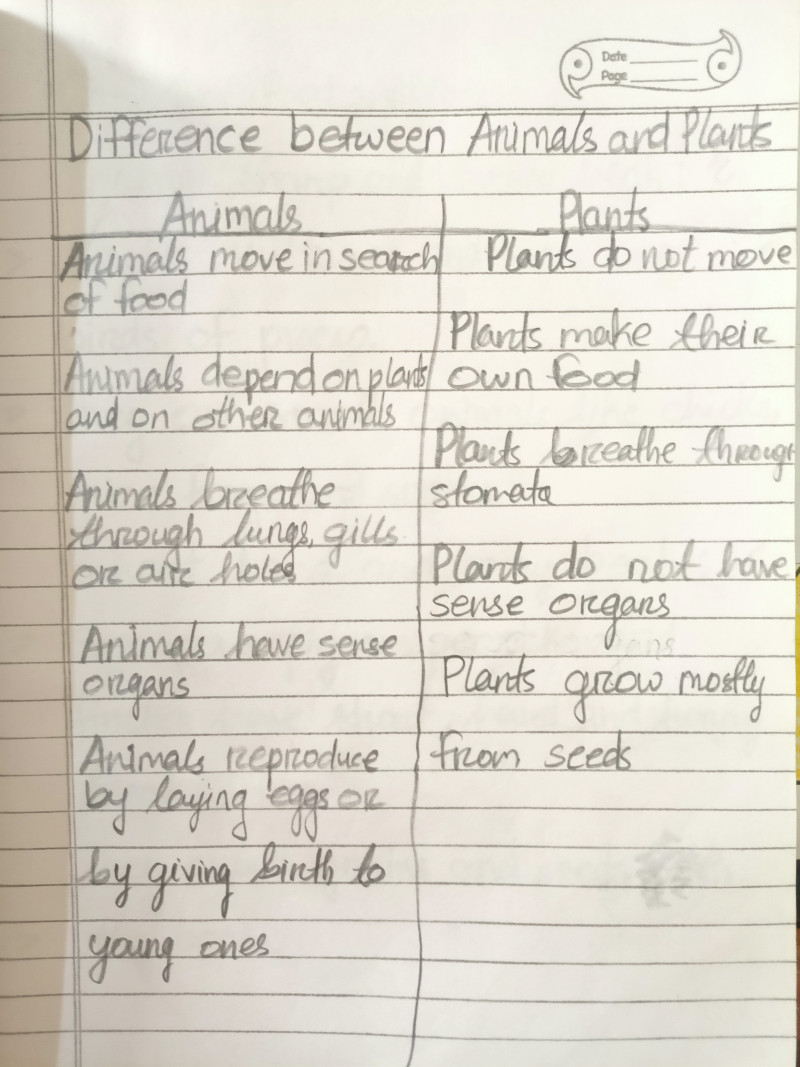 Date
Page
Difference between Animals and Plants
Animals
Plants
Animals move in search
of food
Animals depend on plants
and on other animals
Animals breathe
through lungs, gills
or air holes
Animals have sense
organs
Animals reproduce
by laying eggs or
by giving birth to
young ones
Plants do not move
Plants make their
own food
Plants breathe through
stomata
Plants do not have
sense organs
Plants grow mostly
from seeds